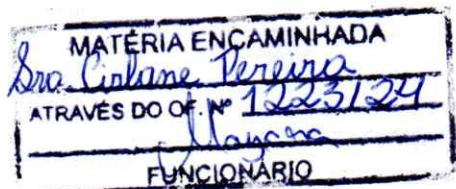 MATÉRIA ENCAMINHADA
Sra. Cirlane Pereira
ATRAVÉS DO OF. Nº 1223/24
Mayara
FUNCIONÁRIO